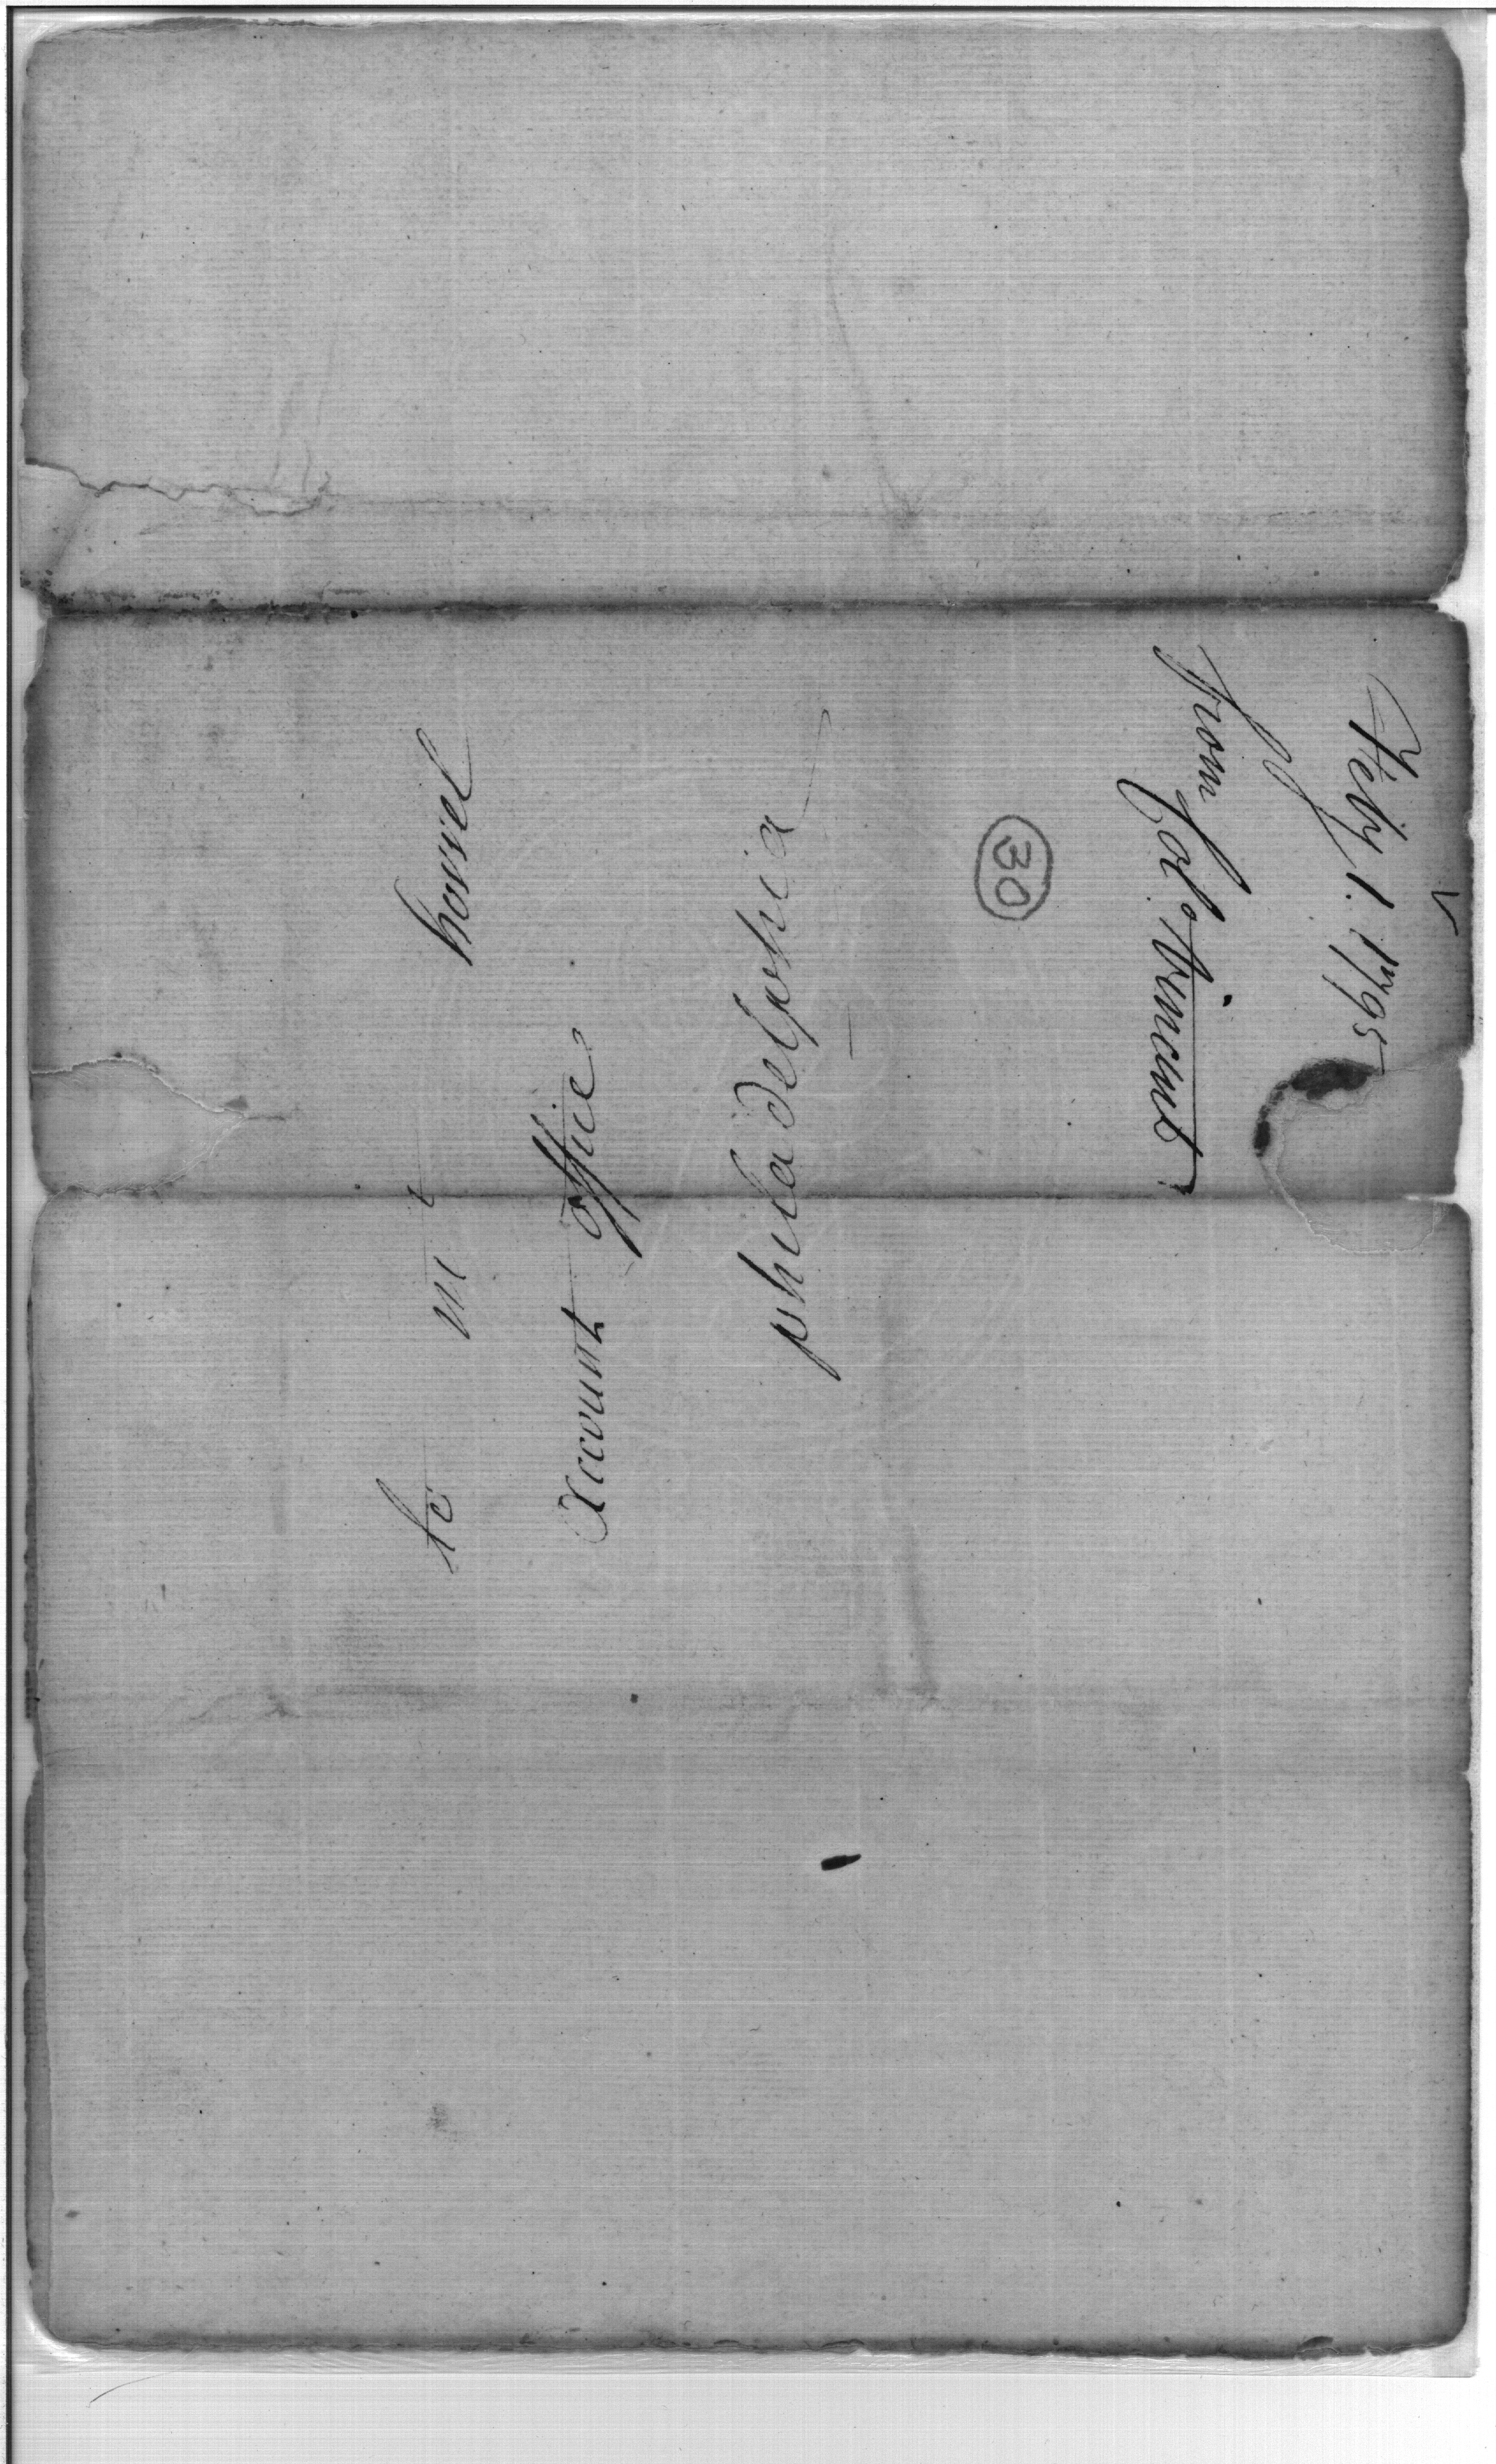 to mr howel
account office
philadelphia
Feby 1. 1795
from Colo Vincent
30